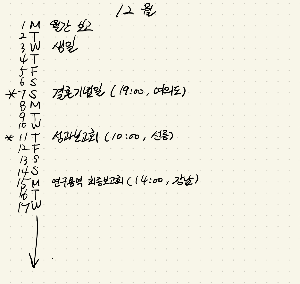 12월
1 M 월간 보고
2 T
3 W 생일
4 T
5 F
6 S
*7 S 결혼기념일 (19:00, 여의도)
8 M
9 T
10 W
*11 T 성과보고회 (10:00, 선릉)
12 F
13 S
14 S
15 M 연구용역 최종보고회 (14:00, 강남)
16 T
17 W